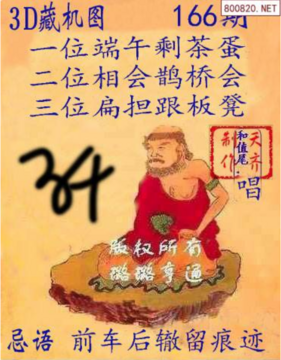 800820.NET
3D藏机图 166期
一位端午剩茶蛋
二位相会鹊桥会
三位扁担跟板凳
天齐
和值尾:
制作
唱
34
版权所有
璐璐亨通
忌语 前车后辙留痕迹